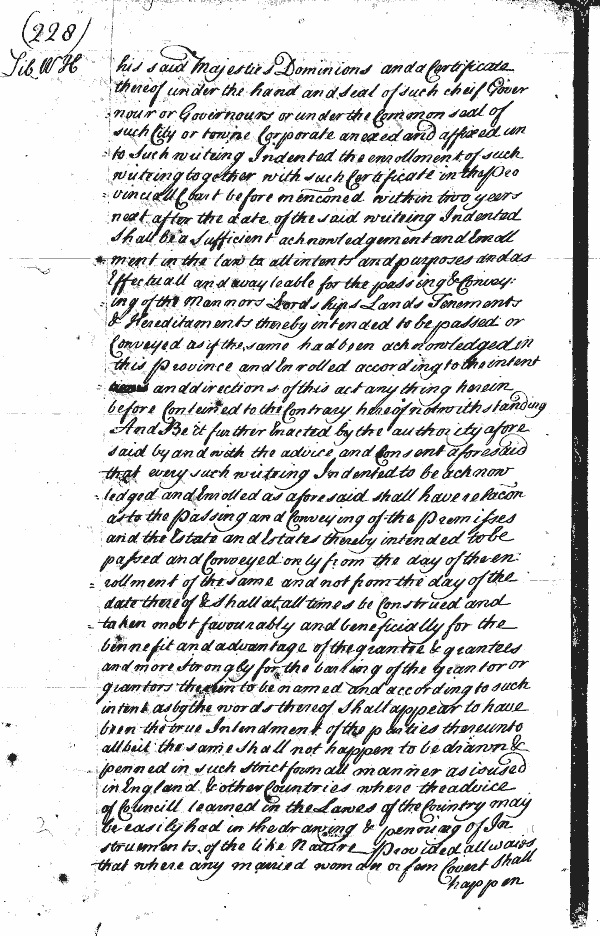 (228)
Lib W H
his said Majesties Dominions and a Certificate
thereof under the hand and seal of such cheif Gover
nour or Governours or under the Common seal of
such City or towne Corporate anexed and affixed un
to Such writeing Indented the enrollment of such
writeing together with such Certificate in the Pro
vinciall Court before menconed within two years
next after the date of the said writeing Indented
Shall be a Sufficient acknowledgement and Enroll
ment in the law to all intents and purposes and as
Effectuall and avayleable for the passing & Convey:
ing of the Mannors Lordships Lands Tenements
& Hereditaments thereby intended to be passed or
Conveyed as if the same had been acknowledged in
this Province and Enrolled according to the intent
and directions of this act any thing herein
before Conteined to the Contrary hereof notwithstanding
And Be it further Enacted by the authority afore
said by and with the advice and Consent aforesaid
that every such writeing Indented to be acknow
ledged and Enrolled as aforesaid shall have relacon
as to the Passing and Conveying of the Premisses
and the Estate and Estates thereby intended to be
passed and Conveyed only from the day of the en
rollment of the same and not from the day of the
date thereof & shall at all times be Construed and
taken most favourably and beneficially for the
bennefit and advantage of the grantee & grantees
and more strongly for the barring of the grantor or
grantors therein to be named and according to such
intent as by the words thereof shall appear to have
been the true Intendment of the parties thereunto
allbeit the same shall not happen to be drawn &
penned in such strict formall manner as is used
in England & other Countries where the advice
of Councill learned in the Lawes of the Country may
be easily had in the drawing & penning of In
struements of the like Nature Provided allwaies
that where any married woman or fem Covert shall
happen